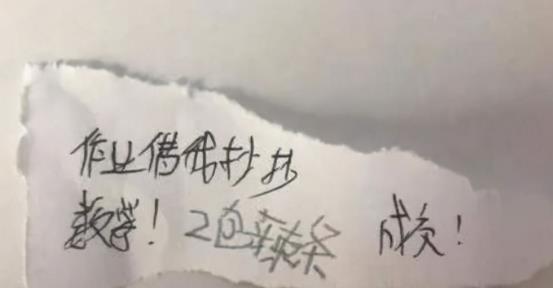 作业借我抄抄
数学！2包辣条 成交！